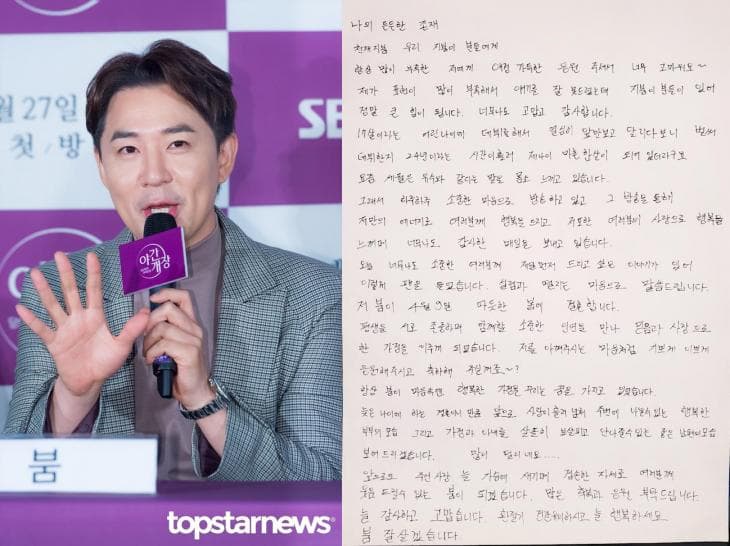 월 27일
첫 방
SB
야간개장
붐
topstarnews
나의 든든한 존재
천재지붐 우리 지붐이 분들에게
항상 많이 부족한 저에게 애정 가득한 응원 주셔서 너무 고마워요~
제가 표현이 많이 부족해서 얘기를 잘 못드렸는데 지붐이 분들이 있어
정말 큰 힘이 됩니다. 너무나도 고맙고 감사합니다.
17살이라는 어린나이에 데뷔를해서 열심히 앞만보고 달리다보니 벌써
데뷔한지 24년이라는 시간이흘러 제나이 마흔한살이 되어 있더라구요
요즘 세월은 유수와 같다는 말을 몸소 느끼고 있습니다.
그래서 하루하루 소중한 마음으로 방송하고 있고 그 방송을 통해
저만의 에너지로 여러분께 행복을 드리고 저또한 여러분의 사랑으로 행복을
느끼며 너무나도 감사한 매일을 보내고 있습니다.
오늘 너무나도 소중한 여러분께 제일먼저 드리고 싶은 이야기가 있어
이렇게 펜을 들었습니다. 설렘과 떨리는 마음으로 말씀드립니다.
저 붐이 4월 9일 따뜻한 봄에 결혼합니다.
평생을 서로 존중하며 함께할 소중한 인연을 만나 믿음과 사랑으로
한 가정을 이루게 되었습니다. 저를 아껴주시는 마음처럼 기쁘게 예쁘게
응원해주시고 축하해 주실꺼죠~?
항상 붐이 마음속엔 행복한 가정을 꾸리는 꿈을 가지고 있었습니다.
늦은 나이에 하는 결혼이니 만큼 앞으로 사랑이 흘러 넘쳐 주변에 나눌수있는 행복한
부부의 모습 그리고 가정과 아내를 살뜰히 보살피고 단단할수있는 좋은 남편의모습
보여드리겠습니다. 말이 길어 네요.....
앞으로도 주신 사랑 늘 가슴에 새기며 겸손한 자세로 여러분께
웃음 드릴수 있는 붐이 되겠습니다. 많은 축복과 응원 부탁드립니다.
늘 감사하고 고맙습니다 환절기 건강유의하시고 늘 행복하세요
붐 잘 살겠습니다